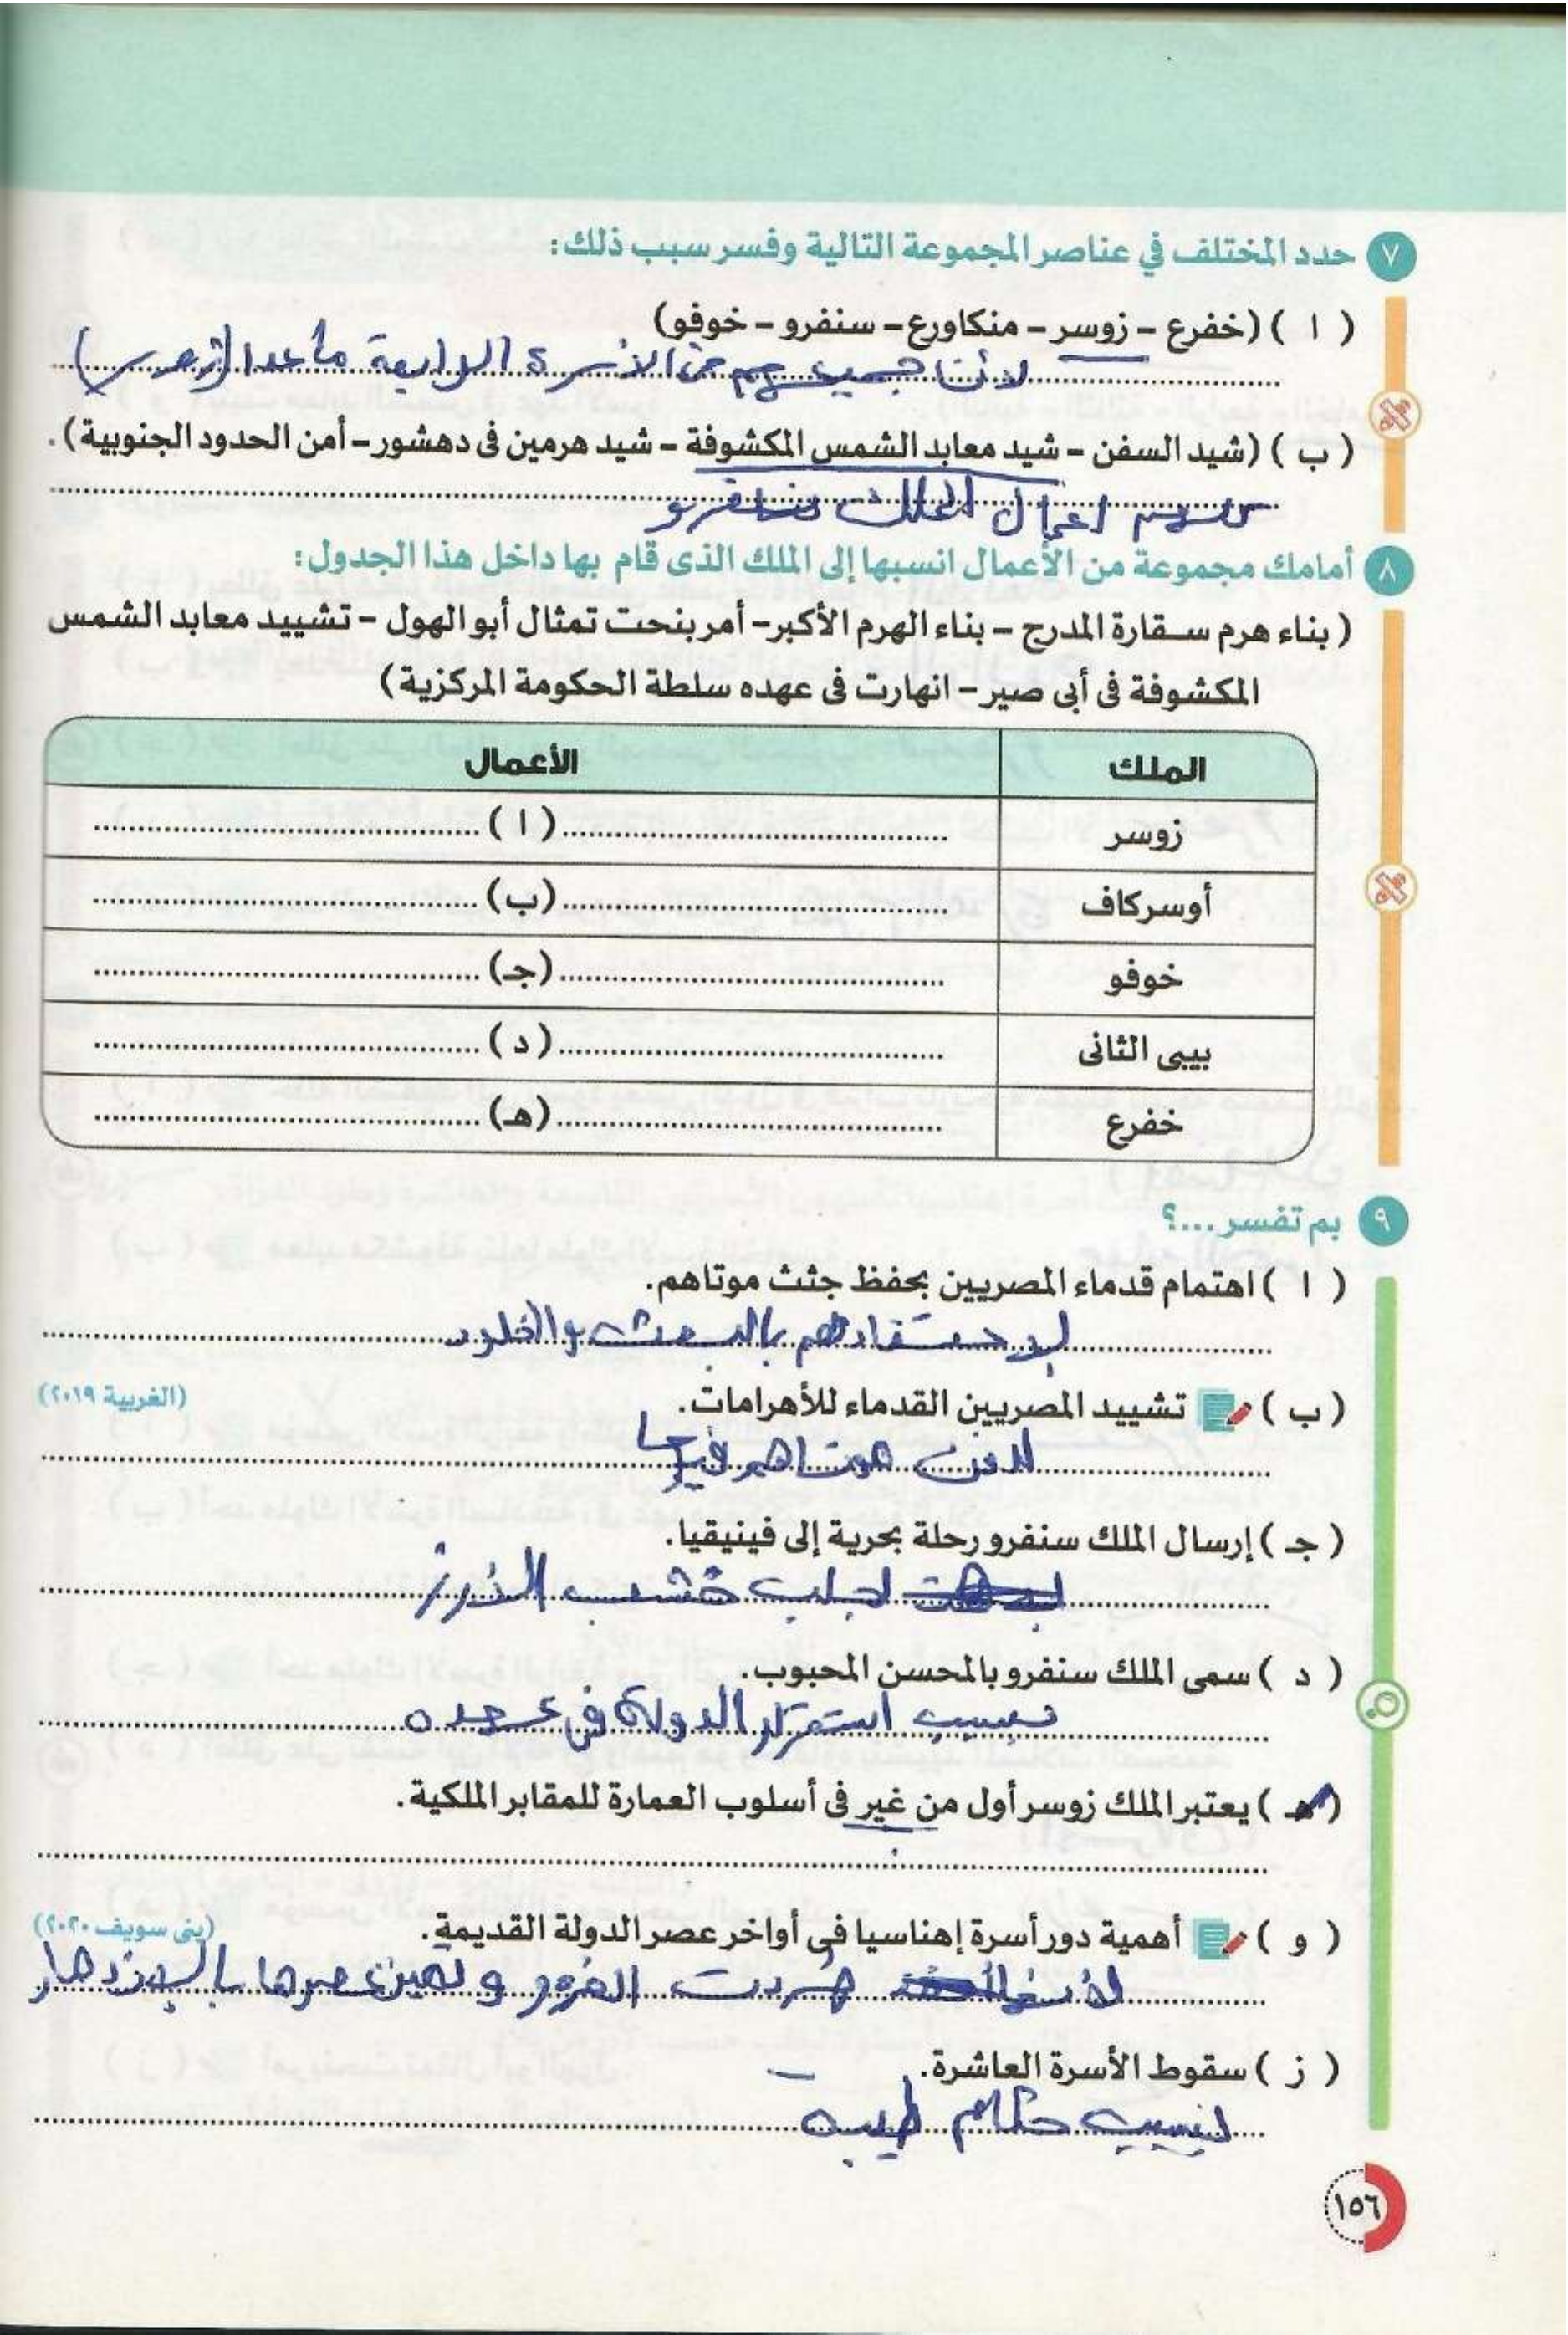 ٧ حدد المختلف في عناصر المجموعة التالية وفسر سبب ذلك:
( ا ) (خفرع - زوسر - منكاورع - سنفرو - خوفو)
لأن جميعهم من الأسرة الرابعة ما عدا (زوسر)
( ب ) (شيد السفن - شيد معابد الشمس المكشوفة - شيد هرمين فى دهشور - أمن الحدود الجنوبية).
من اعمال الملك سنفرو
٨ أمامك مجموعة من الأعمال انسبها إلى الملك الذى قام بها داخل هذا الجدول:
( بناء هرم سقارة المدرج - بناء الهرم الأكبر - أمر بنحت تمثال أبو الهول - تشييد معابد الشمس
المكشوفة فى أبى صير - انهارت فى عهده سلطة الحكومة المركزية)
الملك الأعمال
زوسر ( ا )
أوسركاف (ب)
خوفو (جـ)
بيبى الثانى ( د )
خفرع (هـ)
٩ بم تفسر ...؟
( ا ) اهتمام قدماء المصريين بحفظ جثث موتاهم.
لاعتقادهم بالبعث والخلود
( ب ) تشييد المصريين القدماء للأهرامات. (الغربية ٢٠١٩)
لدفن موتاهم فيها
( جـ ) إرسال الملك سنفرو رحلة بحرية إلى فينيقيا.
لجلب خشب الأرز
( د ) سمى الملك سنفرو بالمحسن المحبوب.
بسبب استقرار الدولة فى عهده
( هـ ) يعتبر الملك زوسر أول من غير فى أسلوب العمارة للمقابر الملكية.
( و ) أهمية دور أسرة إهناسيا فى أواخر عصر الدولة القديمة. (بنى سويف ٢٠٢٠)
لأنها طردت البدو وتميز عصرها بالازدهار
( ز ) سقوط الأسرة العاشرة.
بسبب حكام طيبة
١٥٦